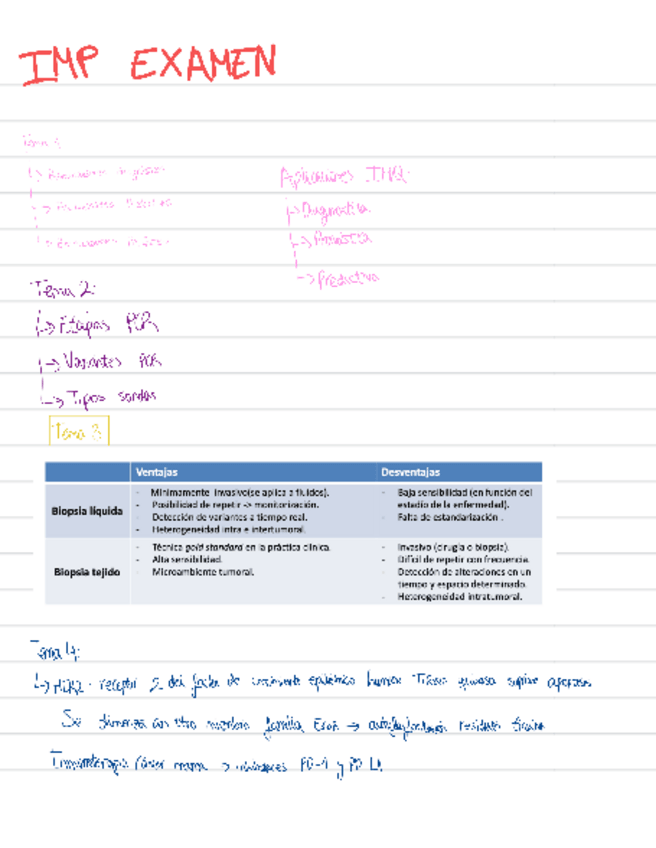 IMP EXAMEN
Tema 1
Aplicaciones IHQ:
-> Diagnóstica
-> Pronóstica
-> Predictiva
Tema 2:
-> Etapas PCR
-> Variantes PCR
-> Tipos sondas
Tema 3
Ventajas
Desventajas
Biopsia líquida
- Mínimamente invasivo(se aplica a fluidos).
- Posibilidad de repetir -> monitorización.
- Detección de variantes a tiempo real.
- Heterogeneidad intra e intertumoral.
- Baja sensibilidad (en función del
estadio de la enfermedad).
- Falta de estandarización .
Biopsia tejido
- Técnica gold standard en la práctica clínica.
- Alta sensibilidad.
- Microambiente tumoral.
- Invasivo (cirugía o biopsia).
- Difícil de repetir con frecuencia.
- Detección de alteraciones en un
tiempo y espacio determinado.
- Heterogeneidad intratumoral.
Tema 4:
-> HER2: receptor 2 del factor de crecimiento epidérmico humano
Se dimeriza con otro miembro familia ErbB -> autofosforilación residuos tirosina
Inmunoterapia cáncer mama -> inhibidores PD-1 y PD L1